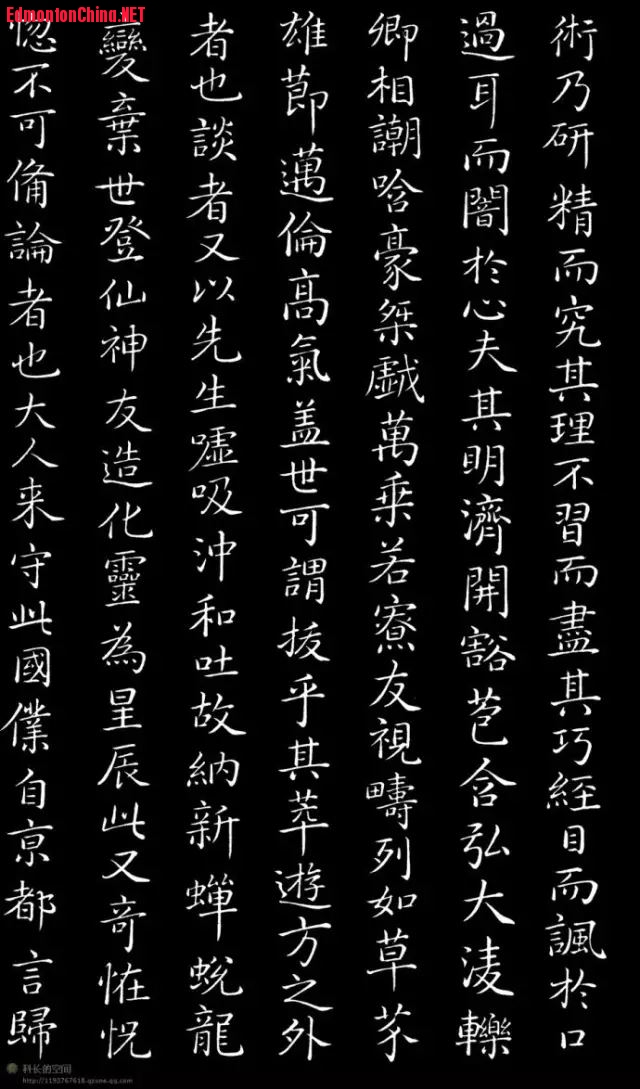 EdmontonChina.NET
術乃研精而究其理不習而盡其巧經目而諷於口
過耳而闇於心夫其明濟開豁苞含弘大淩轢
卿相謿哈豪桀戱萬乗若寮友視疇列如草芥
雄莭邁倫高氣盖世可謂拔乎其萃遊方之外
者也談者又以先生嘘吸沖和吐故納新蟬蛻龍
變棄世登仙神友造化靈為星辰此又竒恠怳
惚不可俻論者也大人来守此國僕自亰都言歸
科长的空间
http://1193767618.qzone.qq.com